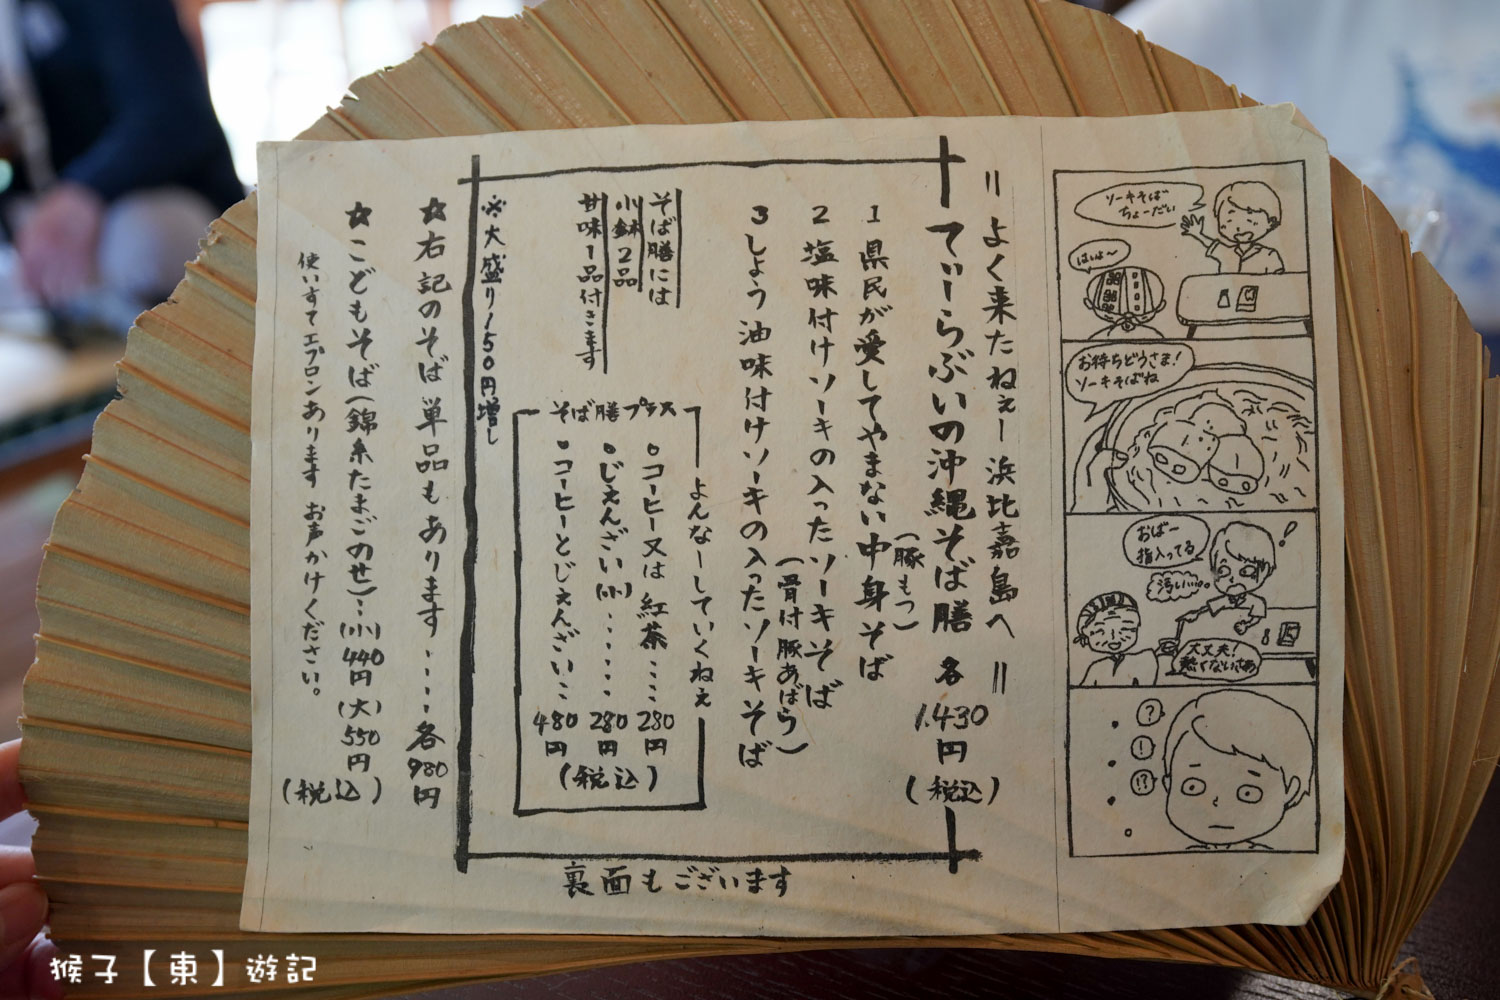 ＝よく来たねぇー浜比嘉島へ＝
てぃーらぶいの沖縄そば膳 各1.430円(税込)
1 県民が愛してやまない中身そば
(豚もつ)
2 塩味付けソーキの入ったソーキそば
(骨付豚あばら)
3 しょう油味付けソーキの入ったソーキそば
そば膳には
小鉢2品
甘味1品付きます
よんなーしていくねぇ
そば膳プラス
・コーヒー又は紅茶‥‥280円
・じぇんざい(小)‥‥‥280円
・コーヒーとじぇんざい‥480円
(税込)
※大盛り150円増し
☆右記のそば単品もあります‥‥各980円
☆こどもそば(錦糸たまごのせ)‥(小)440円(大)550円
(税込)
使いすてエプロンあります お声かけください。
裏面もございます
ソーキそば
ちょーだい
はいよ〜
お待ちどうさま!
ソーキそばね
おばー
指入ってる
!
汚い‥‥。
大丈夫!
熱くないさぁ
?
!
!?
猴子【東】遊記